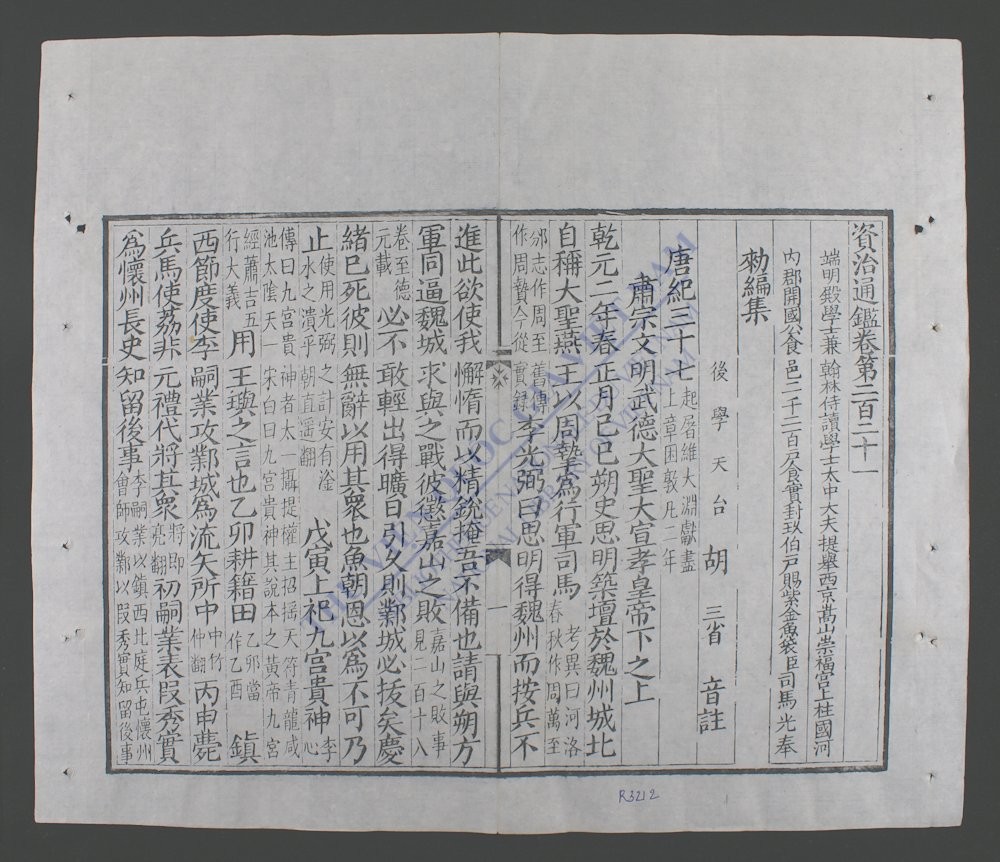 資治通鑑卷第二百二十一
端明殿學士兼翰林侍讀學士太中大夫提舉西京嵩山崇福宮上柱國河
內郡開國公食邑二千二百戶食實封玖伯戶賜紫金魚袋臣司馬光奉
勑編集
後學天台胡三省音註
唐紀三十七起屠維大淵獻盡上章困敦凡二年
肅宗文明武德大聖大宣孝皇帝下之上
乾元二年春正月己巳朔史思明築壇於魏州城北
自稱大聖燕王以周摯為行軍司馬考異曰河洛春秋作周萬至
邠志作周至舊傳作周贄今從實錄李光弼曰思明得魏州而按兵不
進此欲使我懈惰而以精銳掩吾不備也請與朔方
軍同逼魏城求與之戰彼懲嘉山之敗嘉山之敗事見二百十八
卷至德元載必不敢輕出得曠日引久則鄴城必拔矣慶
緒已死彼則無辭以用其衆也魚朝恩以為不可乃
止使用光弼之計安有滏水之潰乎朝直遥翻戊寅上祀九宫貴神李心
傳曰九宮貴神者太一攝提權主招摇天符青龍咸
池太陰天一宋白曰九宮貴神其說本之黄帝九宮
經蕭吉五行大義用王璵之言也乙卯耕籍田乙卯當作乙酉鎮
西節度使李嗣業攻鄴城為流矢所中中竹仲翻丙申薨
兵馬使荔非元禮代將其衆將即亮翻初嗣業表段秀實
為懷州長史知留後事李嗣業以鎮西北庭兵屯懷州會師攻鄴以段秀實知留後事
一
THƯ VIỆN QUỐC GIA VIỆT NAM
NATIONAL LIBRARY OF VIETNAM
R3212